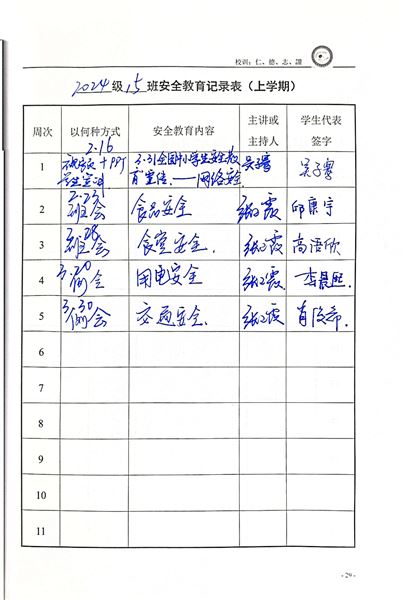 校训：仁、德、志、謹
2024级15班安全教育记录表（上学期）
周次 以何种方式 安全教育内容 主讲或主持人 学生代表签字
1 2.16 +PPT 3.31全国中小学生安全教育宣传.——网络安全
2 2.23 班会 食品安全 张霞 邱康宇
3 2.28 班会 食堂安全. 张霞 高语欣
4 3.20 例会 用电安全 张霞 李晨熙
5 3.30 例会 交通安全. 张霞
6
7
8
9
10
11
-29-